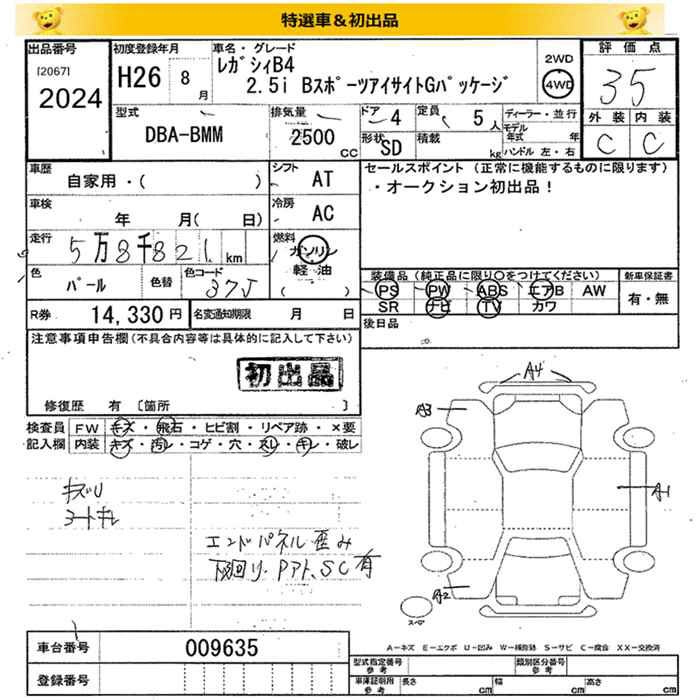 特選車&初出品
出品番号
[2067]
2024
初度登録年月
H26 8月
車名・グレード
レガシィB4
2.5i BスポーツアイサイトGパッケージ
2WD
4WD
評価点
35
外装 内装
C C
型式
DBA-BMM
排気量
2500 CC
ドア 4
形状 SD
定員 5人
積載 kg
ディーラー・並行
モデル年式 年
ハンドル 左・右
車歴
自家用・( )
シフト AT
車検
年 月( 日)
冷房 AC
走行
5万8千821km
燃料
ガソリン
軽油
( )
色 パール 色替 色コード 37J
R券 14,330円 名変通知期限 月 日
セールスポイント (正常に機能するものに限ります)
・オークション初出品!
装備品 (純正品に限り○をつけてください) 新車保証書
PS PW ABS エアB AW
SR ナビ TV カワ
有・無
後日品
注意事項申告欄(不具合内容等は具体的に記入して下さい)
初出品
修復歴 有 [箇所 ]
検査員記入欄
FW キズ・飛石・ヒビ割・リペア跡・×要
内装 キズ・汚レ・コゲ・穴・スレ・キレ・破レ
キズU
コートキレ
エンドパネル歪み
下回り・Pアト、SC有
A4
A3
A1
A2
スペア
A-キズ E-エクボ U-凹み W-補修跡 S-サビ C-腐食 XX-交換済
車台番号 009635
登録番号
型式指定番号 参考
類別区分番号 参考
車庫証明用 参考 長さ cm 幅 cm 高さ cm